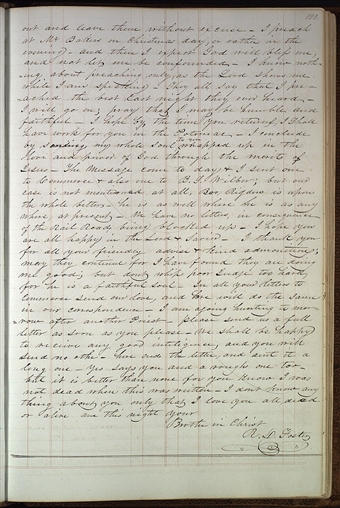 out and leave them without excuse - I preach
at Mr Bakers on Christmas day, or rather in the
evening - and then I expect God will bless me,
and not let me be confounded - I know noth-
ing about preaching only as the Lord shows me
while I am speaking - They all say that I pre-
ached the best last night they ever heard -
I will go on, pray that I may be humble and
faithful - I hope by the time you return, I shall
have work for you in the Potomac - I conclude
by sending my whole soul to you wrapped up in the
love and power of God through the merits of
Jesus - The Message come to day & I sent one
to Commerce & also one to B. Wilber; but our
case is not mentioned at all, Bro Rigdon is upon
the whole better - he is as well where he is as any
where at present - We have no letters, in consequence
of the Rail Road being blocked up - I hope you
are all happy in the Lord & Saved - I thank you
for all your friendly advice & kind admonitions,
may they continue for I have found they are doing
me good; but dont whip poor Judge too hard,
for he is a faithful soul - In all your letters to
Commerce send our love, and we will do the same
in our correspondence - I am agoing hunting to mor-
row after another Priest - Please send us a full
letter as soon as you please - We shall be happy
to receive any good inteligence, and you will
send no other - here ends the letter, and aint it a
long one - Yes says you and a rough one too -
but it is better than none for you know I was
not dead when this was written - I dont know any
thing about you only that I love you all dead
or alive am this night your
Brother in Christ
R. D. Foster